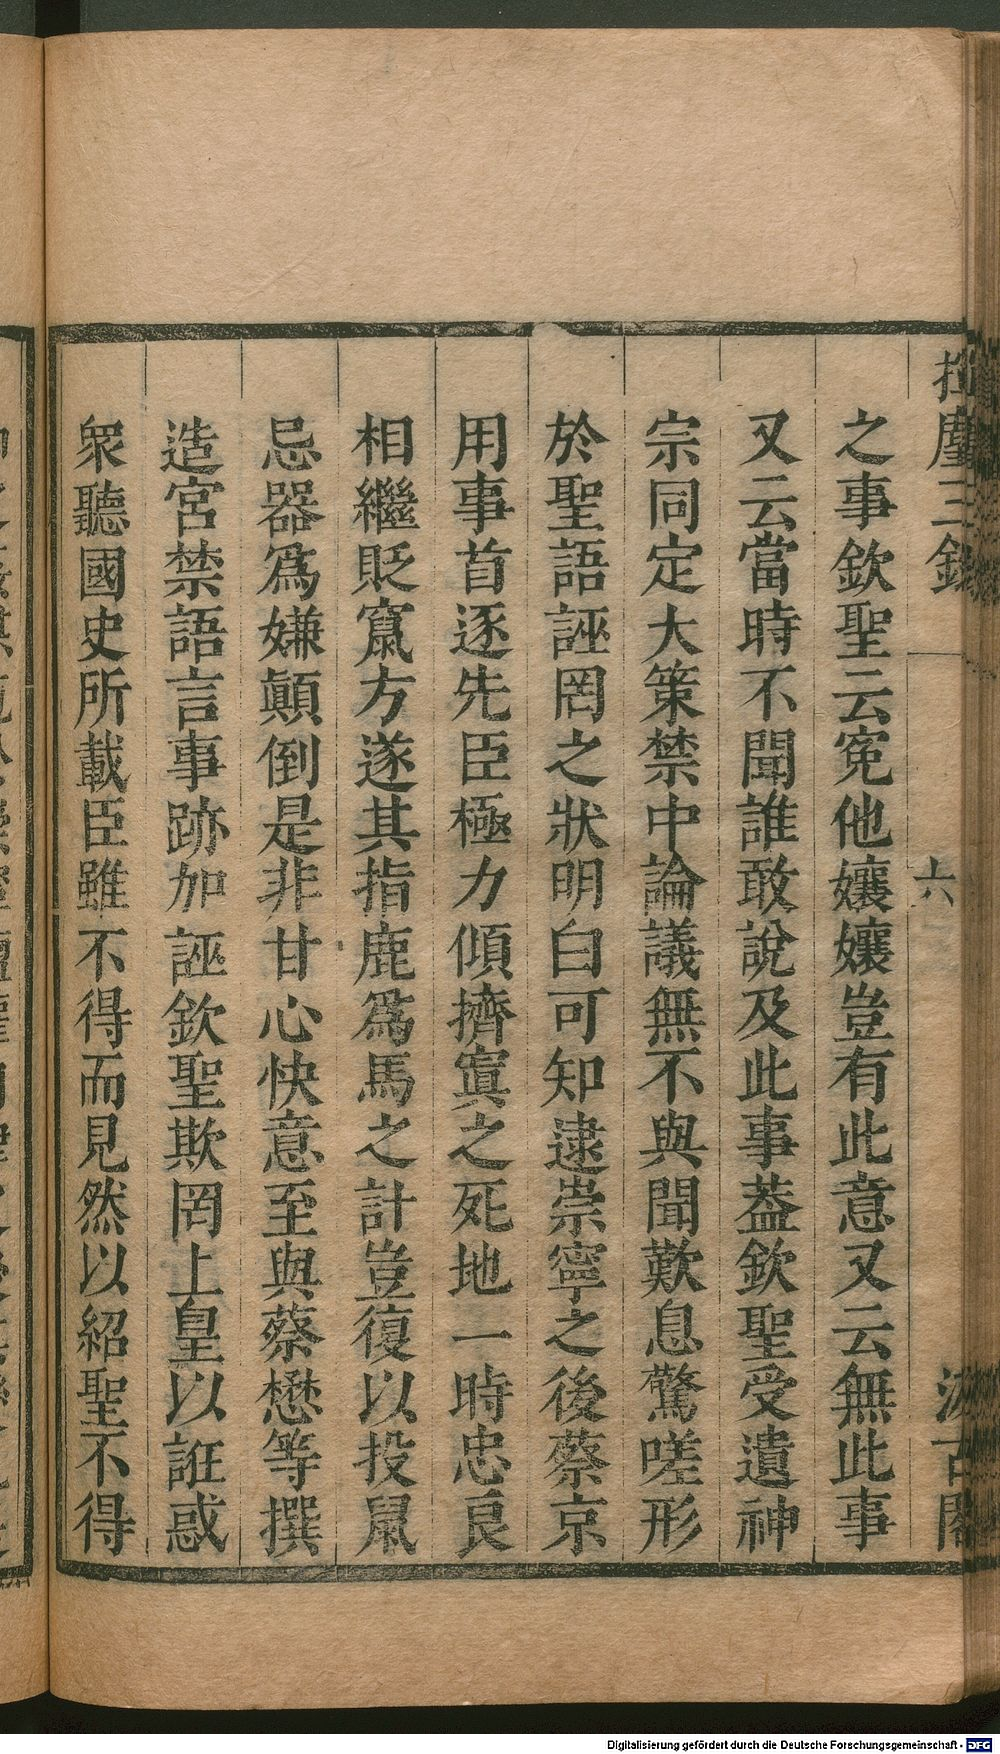 揮麈三錄
六
汲古閣
之事欽聖云寃他孃孃豈有此意又云無此事
又云當時不聞誰敢說及此事葢欽聖受遺神
宗同定大策禁中論議無不與聞歎息驚嗟形
於聖語誣罔之狀明白可知逮崇寧之後蔡京
用事首逐先臣極力傾擠寘之死地一時忠良
相繼貶竄方遂其指鹿爲馬之計豈復以投鼠
忌器爲嫌顚倒是非甘心快意至與蔡懋等撰
造宮禁語言事跡加誣欽聖欺罔上皇以誑惑
衆聽國史所載臣雖不得而見然以紹聖不得
Digitalisierung gefördert durch die Deutsche Forschungsgemeinschaft - DFG